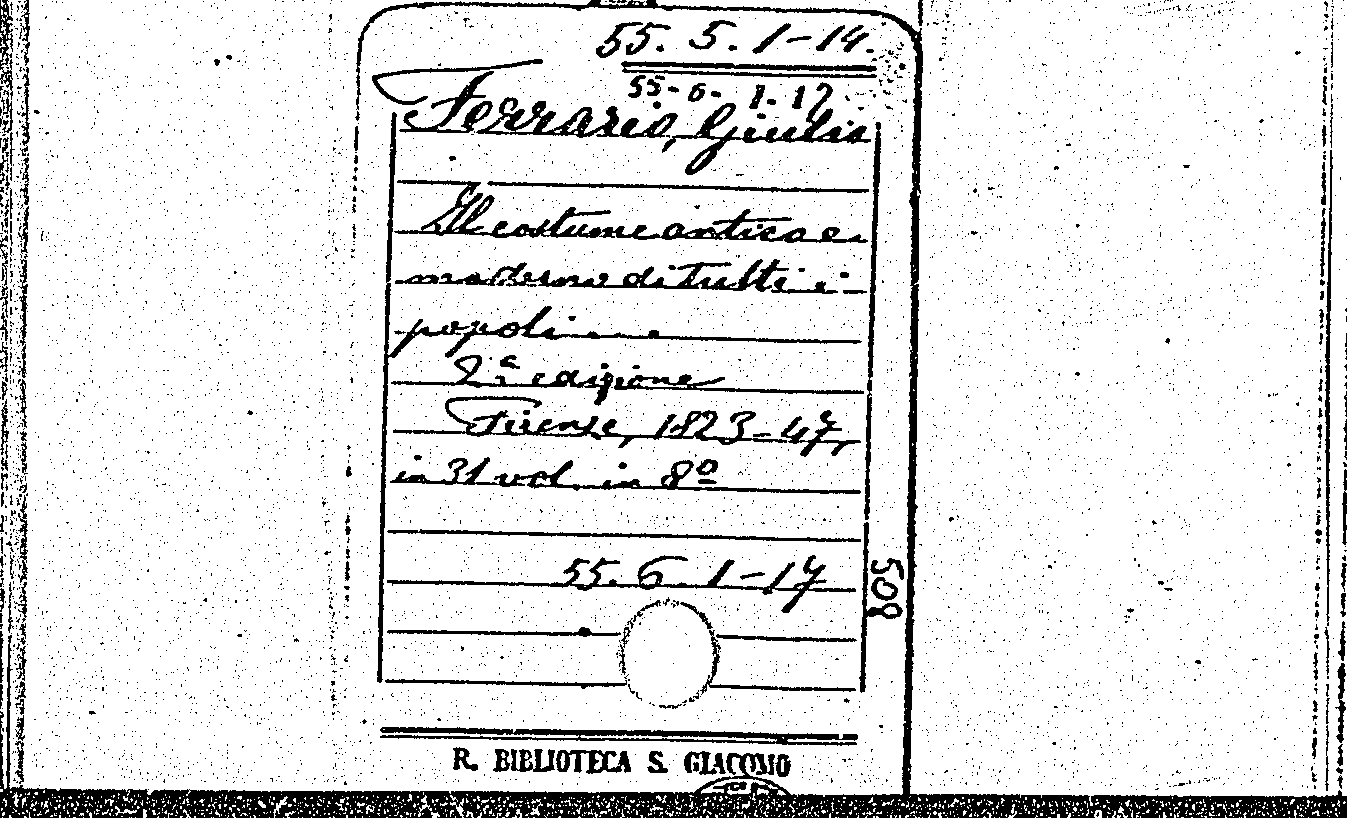 55. 5. 1-14.
55-6- 1-17
Ferrario, Giulio
Il costume antico e
moderno di tutti i
popoli . . .
2ª edizione
Firenze, 1823-47,
in 31 vol. in 8º
55. 6. 1-17
508
R. BIBLIOTECA S. GIACOMO